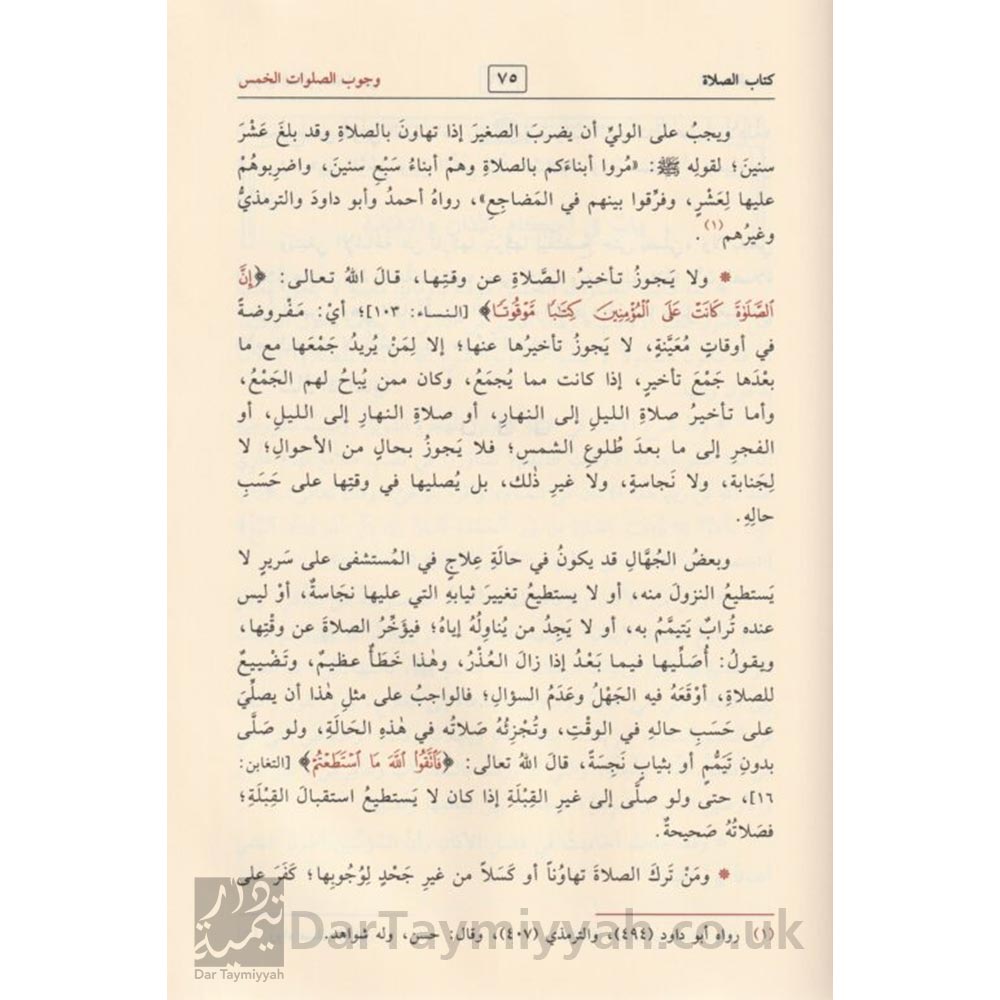 كتاب الصلاة ٧٥ وجوب الصلوات الخمس
ويجبُ على الوليِّ أن يضربَ الصغيرَ إذا تهاونَ بالصلاةِ وقد بلغَ عَشْرَ
سنينَ؛ لقولِه ﷺ: «مُروا أبناءَكم بالصلاةِ وهمْ أبناءُ سَبْعِ سنينَ، واضرِبوهُمْ
عليها لِعَشْرٍ، وفرِّقوا بينهم في المَضاجِعِ»، رواهُ أحمدُ وأبو داودَ والترمذيُّ
وغيرُهم(١).
* ولا يَجوزُ تأخيرُ الصَّلاةِ عن وقتِها، قالَ اللهُ تعالى: ﴿إِنَّ
ٱلصَّلَوٰةَ كَانَتْ عَلَى ٱلْمُؤْمِنِينَ كِتَٰبًا مَّوْقُوتًا﴾ [النساء: ١٠٣]؛ أيْ: مَفْروضةً
في أوقاتٍ مُعَيَّنةٍ، لا يَجوزُ تأخيرُها عنها؛ إلا لِمَنْ يُريدُ جَمْعَها مع ما
بعْدَها جَمْعَ تأخيرٍ، إذا كانت مما يُجمَعُ، وكان ممن يُباحُ لهم الجَمْعُ،
وأما تأخيرُ صلاةِ الليلِ إلى النهارِ، أو صلاةِ النهارِ إلى الليلِ، أو
الفجرِ إلى ما بعدَ طُلوعِ الشمسِ؛ فلا يَجوزُ بحالٍ من الأحوالِ؛ لا
لِجَنابة، ولا نَجاسةٍ، ولا غيرِ ذٰلك، بل يُصليها في وقتِها على حَسَبِ
حالِهِ.
وبعضُ الجُهَّالِ قد يكونُ في حالَةِ عِلاجٍ في المُستشفى على سَريرٍ لا
يَستطيعُ النزولَ منه، أو لا يستطيعُ تغييرَ ثيابهِ التي عليها نجَاسةٌ، أوْ ليس
عنده تُرابٌ يَتيمَّمُ به، أو لا يَجِدُ من يُناوِلُهُ إياهُ؛ فيؤَخِّرُ الصلاةَ عن وقْتِها،
ويقولُ: أُصَلِّيها فيما بَعْدُ إذا زالَ العُذْرُ، وهٰذا خَطَأٌ عظيمٌ، وتَضْييعٌ
للصلاةِ، أوْقَعَهُ فيه الجَهْلُ وعَدَمُ السؤالِ؛ فالواجبُ على مثلِ هٰذا أن يصلِّيَ
على حَسَبِ حالهِ في الوقْتِ، وتُجْزِئُهُ صَلاتُه في هٰذهِ الحَالَةِ، ولو صَلَّى
بدونِ تَيَمُّمٍ أو بثيابٍ نَجِسَةً، قالَ اللهُ تعالى: ﴿فَٱتَّقُوا۟ ٱللَّهَ مَا ٱسْتَطَعْتُمْ﴾ [التغابن:
١٦]، حتى ولو صلَّى إلى غيرِ القِبْلَةِ إذا كان لا يَستطيعُ استقبالَ القِبْلَةِ؛
فصَلاتُهُ صَحيحةٌ.
* ومَنْ تَركَ الصلاةَ تهاوُناً أو كَسَلاً من غيرِ جَحْدٍ لِوُجُوبِها؛ كَفَرَ على
(١) رواه أبو داود (٤٩٤)، والترمذي (٤٠٧)، وقال: حسن، وله شواهد.
DarTaymiyyah.co.uk
دار تيمية
Dar Taymiyyah